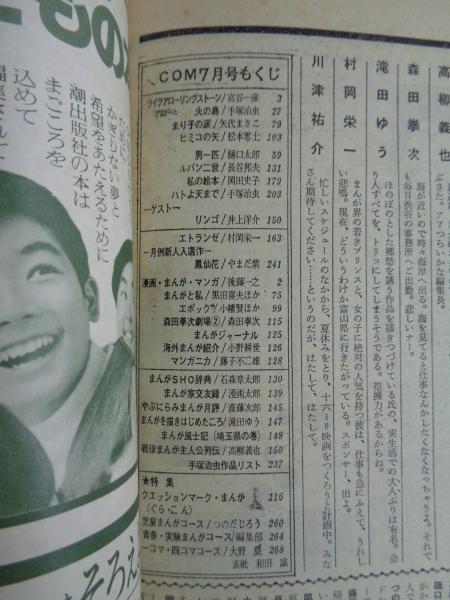 COM7月号もくじ
ライクアローリングストーン/宮谷一彦 3
火の鳥/手塚治虫 27
まり子の涙/矢代まさこ 79
ヒミコの矢/松本零士 103
男一匹/樋口太郎 59
ルパン二世/長谷邦夫 131
私の絵本/岡田史子 179
ハトよ天まで/手塚治虫 203
―ゲスト―
リンゴ/井上洋介 150
エトランゼ/村岡栄一 163
―月例新人入選作―
鳳仙花/やまだ紫 241
漫画・まんが・マンガ/後藤一之 2
まんがと私/黒田喜夫ほか 75
エポックV/小幡賢ほか 99
森田拳次劇場②/森田拳次 115
まんがジャーナル 125
海外まんが紹介/小野耕世 126
マンガニカ/藤子不二雄 128
まんがSHO辞典/石森章太郎 130
まんが家交友録/漫画太郎 139
やぶにらみまんが月評/斎藤次郎 145
まんがを描きはじめたころ/滝田ゆう 147
まんが風土記(埼玉県の巻) 148
戦後まんが主人公列伝/高柳義也 150
手塚治虫作品リスト 237
★特集
クエッションマーク・まんが 116
(ぐら・こん)
児童まんがコース/つのだじろう 260
青春・実験まんがコース/編集部 264
一コマ・四コマコース/大野 豊 268
表紙 和田 誠
高柳義也
ぶさた。アアつらいかな編集長。
森田拳次
海が近いので時々海岸へ出る。海を見てると仕事なんかしたくなくなっちゃうよ。それで
も毎日長谷の事務所へご出勤。悲しいナー。
滝田ゆう
ほのぼのとした郷愁を誘う作品を描きつづけている氏の、実生活での大人ぶりは有名。会
う人すべてを、トリコにしてしまうそうである。抱擁力があるからね。
村岡栄一
まんが界の若きプリンスと、女の子に絶対の人気を持つ彼は、仕事も急にふえて、うれし
い悲鳴。現在、どういうわけか富山県に行きたがっている。スポンサー、出よ。
川津祐介
忙しいスケジュールのなかから、夏休みをとり、十六ミリ映画をつくろうと計画中。みな
さん期待してください……というのだが、はたして、はたして。
かぎりない夢と
希望をあたえるために
潮出版社の本は
まごころを
込めて
編集され
そろえ